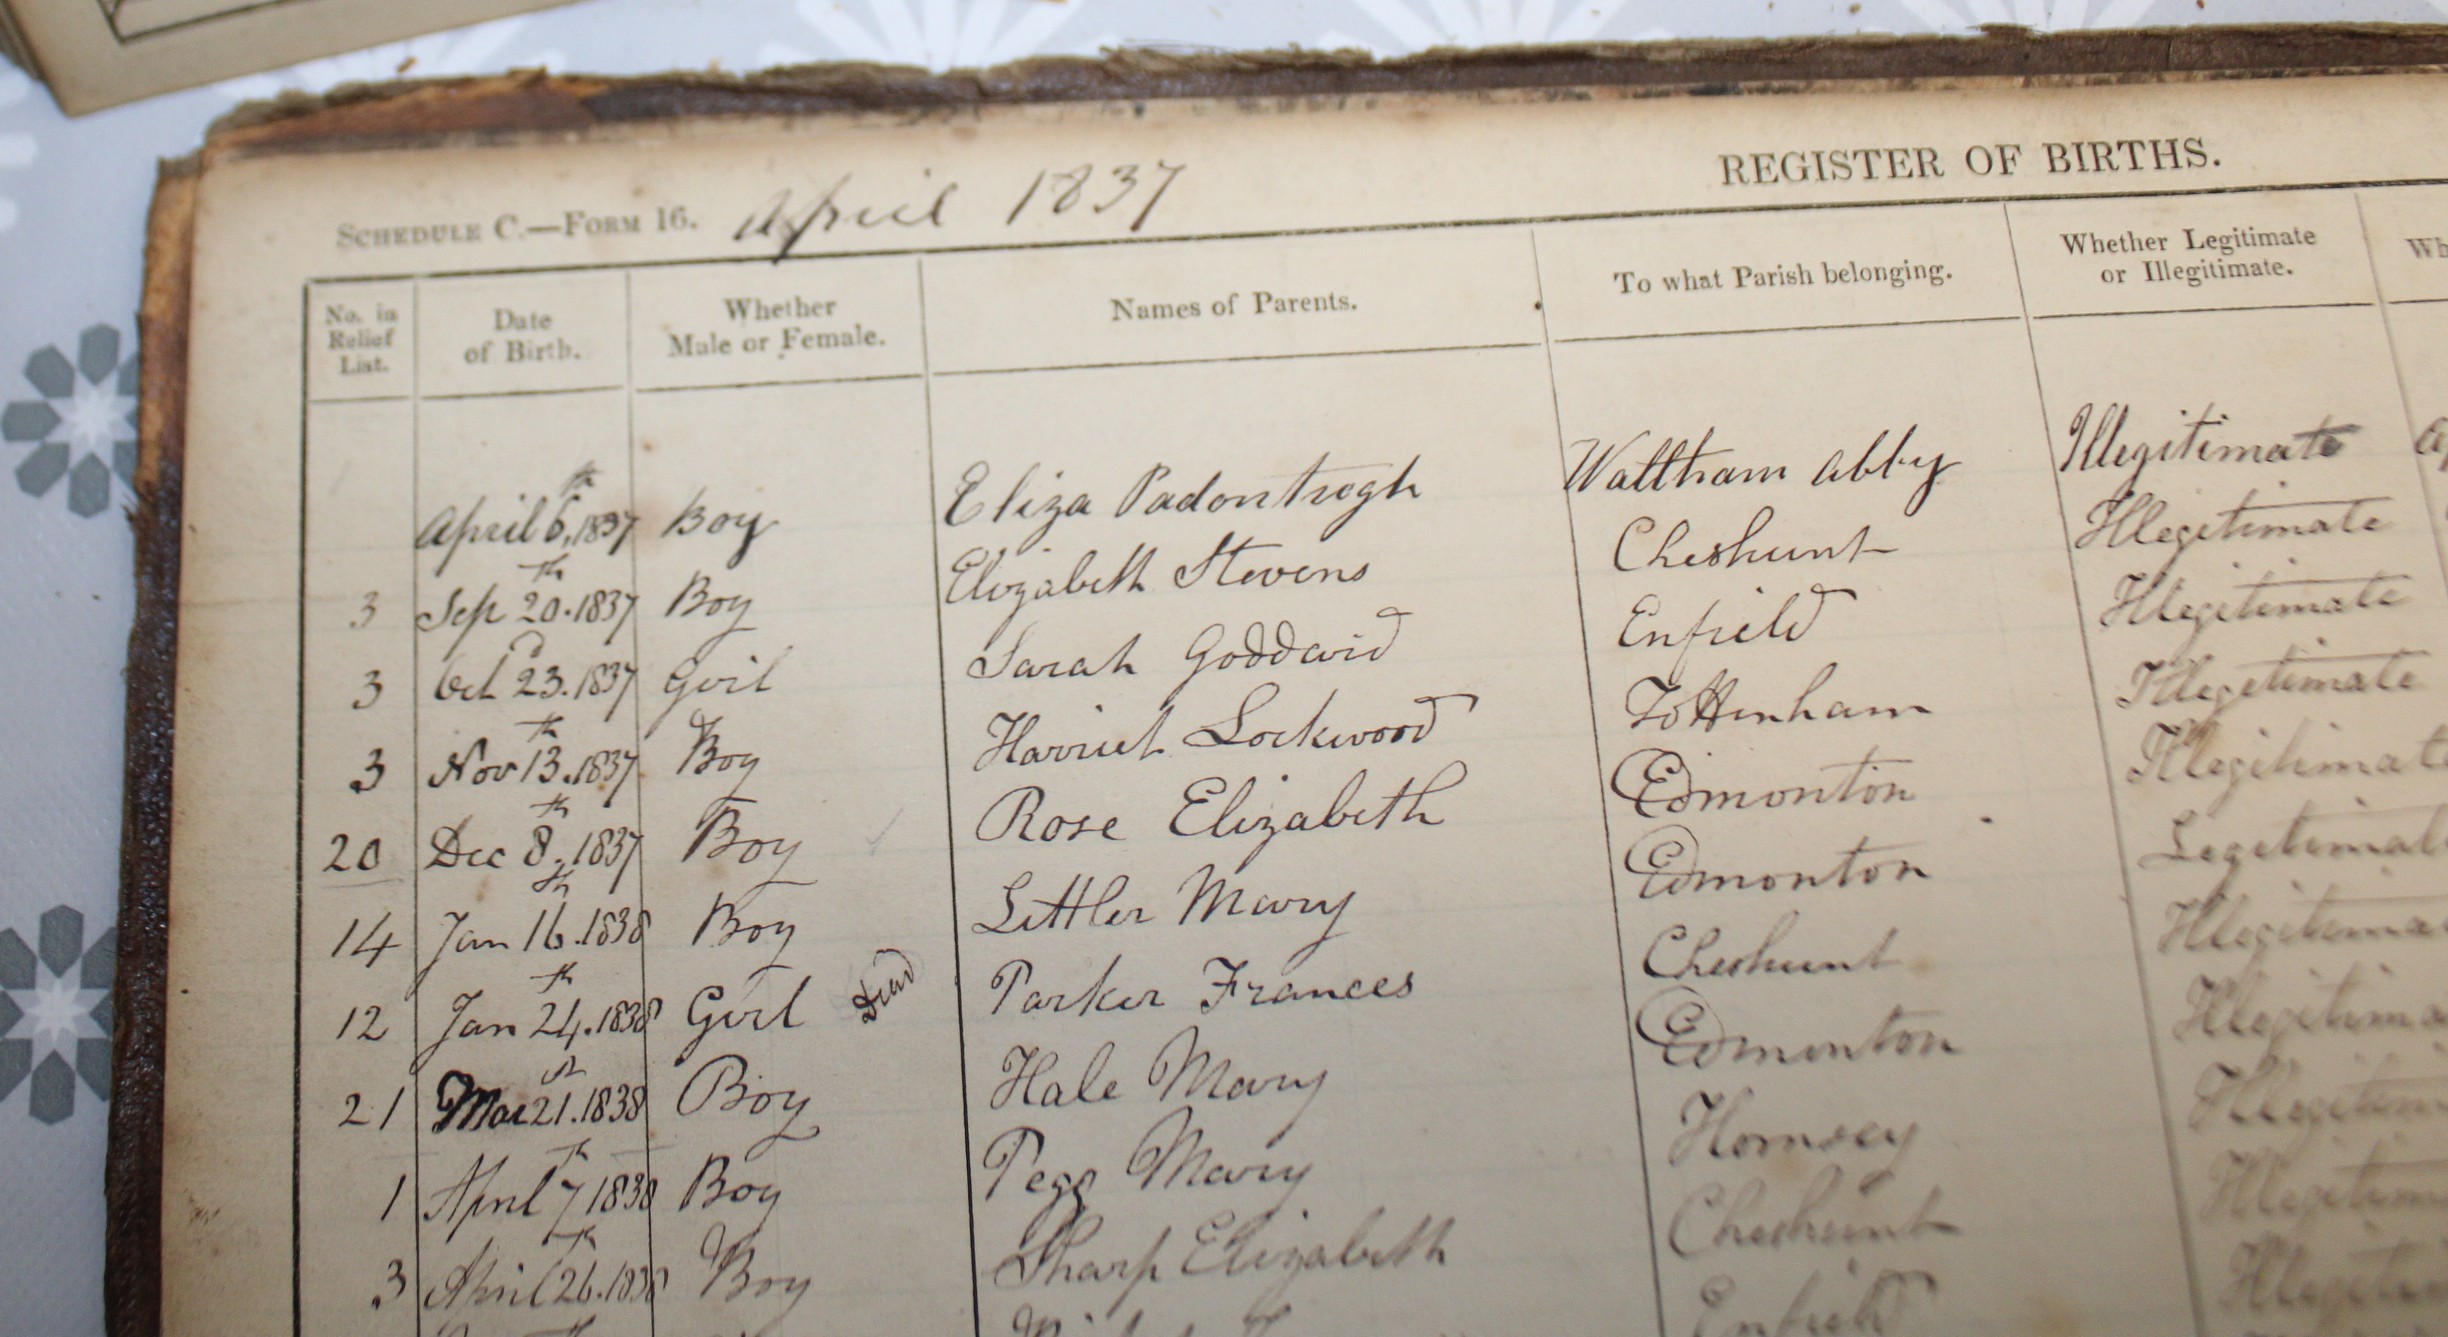 SCHEDULE C.—FORM 16. April 1837
REGISTER OF BIRTHS.
No. in Relief List. Date of Birth. Whether Male or Female. Names of Parents. To what Parish belonging. Whether Legitimate or Illegitimate. Wh
April 6th, 1837 Boy Eliza Padontregh Waltham Abby Illegitimate
3 Sep 20th. 1837 Boy Elizabeth Stevens Cheshunt Illegitimate
3 Oct 23d. 1837 Girl Sarah Goddard Enfield Illegitimate
3 Nov 13th. 1837 Boy Harriet Lockwood Tottenham Illegitimate
20 Dec 8th. 1837 Boy Rose Elizabeth Edmonton Illegitimate
14 Jan 16th. 1838 Boy Littler Mary Edmonton Legitimate
12 Jan 24th. 1838 Girl Dead Parker Frances Cheshunt Illegitimat
21 Mar 21st. 1838 Boy Hale Mary Edmonton Illegitima
1 April 7th 1838 Boy Pegg Mary Hornsey Illegitim
3 April 26th. 1838 Boy Sharp Elizabeth Cheshunt Illegitim
Enfield Illegitim